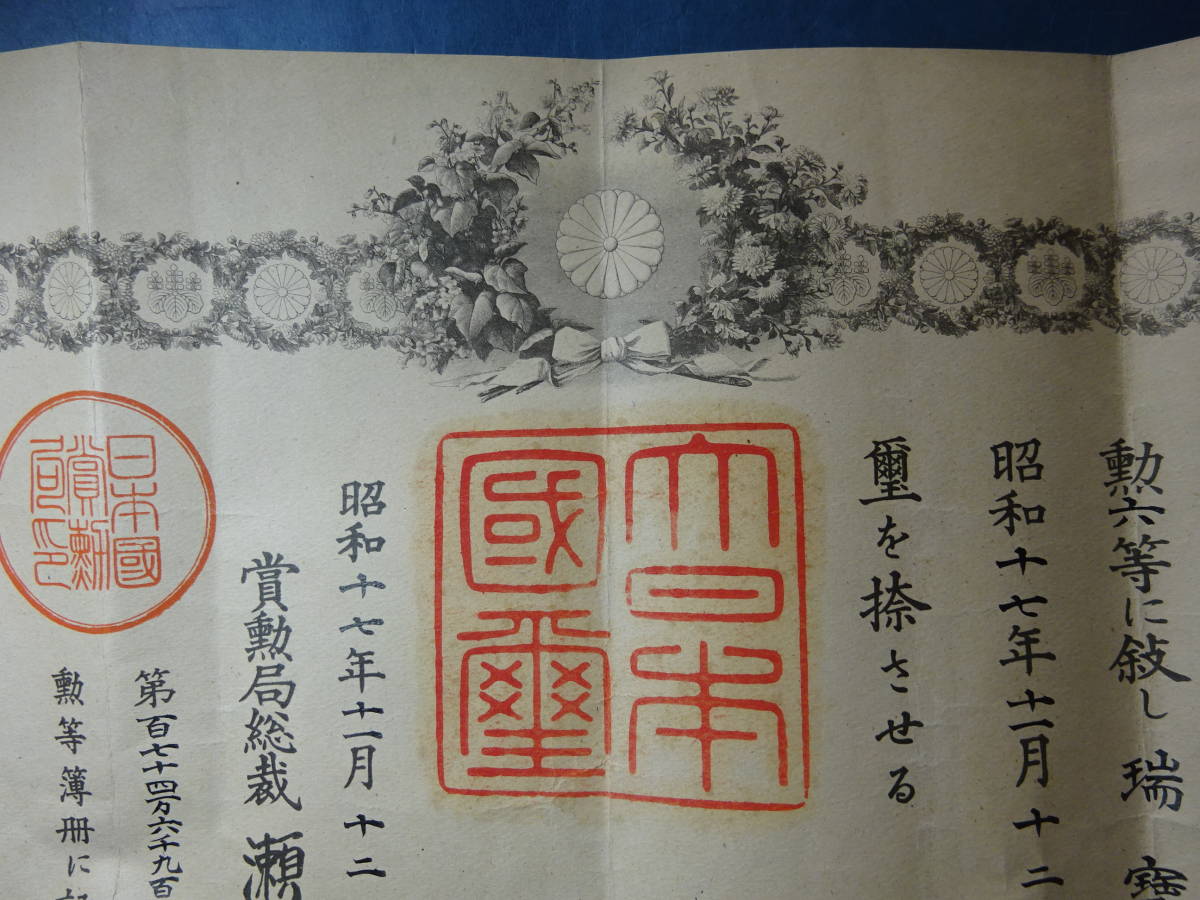 勲六等に敍し瑞寶
昭和十七年十一月十二
璽を捺させる
大日本
國璽
昭和十七年十一月十二
賞勲局総裁瀬
日本國
賞勲
局印
第百七十四万六千九百
勲等簿冊に